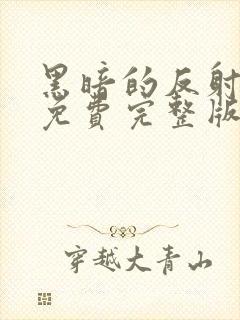 黑暗的反射
免費完整版
穿越大青山